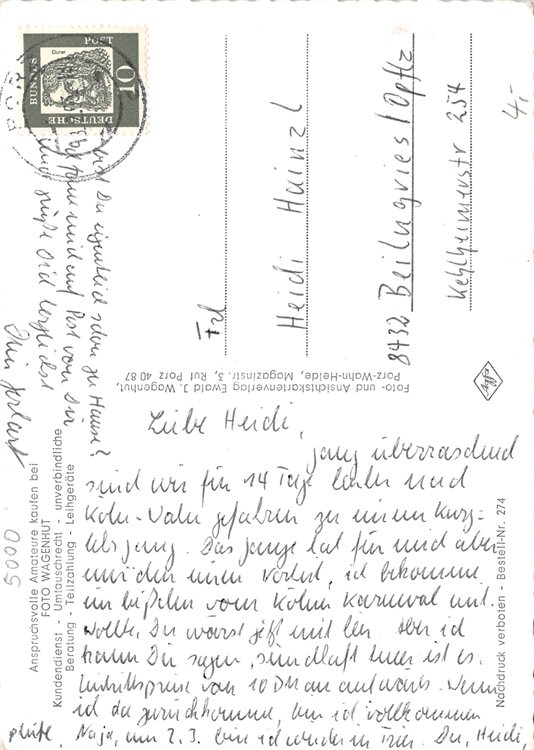 Liebe Heidi,
ganz überraschend
sind wir für 14 Tage hinter nach
Köln-Wahn gefahren zu einem Kurz-
lehrgang. Das ganze hat für mich aber
nur den einen Vorteil, ich bekomme
ein bißchen vom Kölner Karneval mit.
Wollte, Du wärst jetzt mit hier. Aber ich
kann Dir sagen, sündhaft teuer ist es.
Eintrittspreise von 10 DM an aufwärts. Wenn
ich da zurückkomme, bin ich vollkommen
pleite. Naja, am 2.3. bin ich wieder in Trier. Du, Heidi,
bist Du eigentlich schon zu Hause?
Post von Dir
und grüße Dich herzlichst
Dein
Frl
Heidi Hainzl
8432 Beilngries/Opflz
Kehlheimerstr 254
4,-
5000
DEUTSCHE
BUNDES
POST
10
Dürer
PORZ
Foto- und Ansichtskartenverlag Ewald J. Wagenhut,
Porz-Wahn-Heide, Magazinstr. 3, Ruf Porz 40 87
Agfa
Anspruchsvolle Amateure kaufen bei
FOTO WAGENHUT
Kundendienst - Umtauschrecht - unverbindliche
Beratung - Teilzahlung - Leihgeräte
Nachdruck verboten - Bestell-Nr. 274